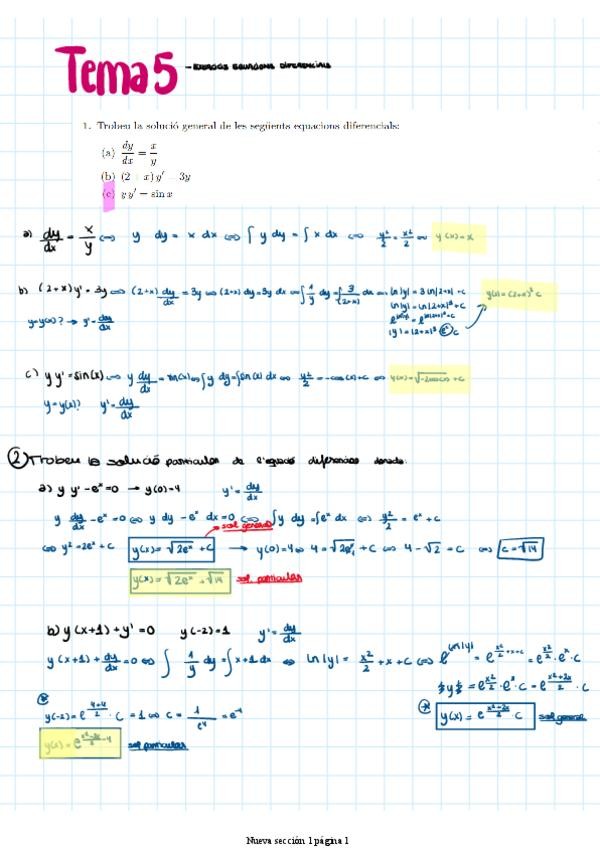 Tema 5 - EXERCICIS EQUACIONS DIFERENCIALS
1. Trobeu la solució general de les següents equacions diferencials:
(a) dy/dx = x/y
(b) (2 + x) y' = 3y
(c) y y' = sin x
a) dy/dx = x/y ⇔ y dy = x dx ⇔ ∫ y dy = ∫ x dx ⇔ y²/2 = x²/2 ⇔ y(x) = x
b) (2+x)y' = 3y ⇔ (2+x) dy/dx = 3y ⇔ (2+x) dy = 3y dx ⇔ ∫ 1/y dy = ∫ 3/(2+x) dx ⇔ ln|y| = 3 ln|2+x| + c
ln|y| = ln|2+x|³ + c
y = y(x)? → y' = dy/dx
|y| = |2+x|³ e^c
y(x) = (2+x)³ c
c) y y' = sin(x) ⇔ y dy/dx = sin(x) ⇔ ∫ y dy = ∫ sin(x) dx ⇔ y²/2 = -cos(x) + c ⇔ y(x) = √-2cos(x) + c
y = y(x)? y' = dy/dx
② Trobeu la solució particular de l'equació diferencial donada:
a) y y' - eˣ = 0 → y(0) = 4 y' = dy/dx
y dy/dx - eˣ = 0 ⇔ y dy - eˣ dx = 0 ⇔ ∫ y dy = ∫ eˣ dx ⇔ y²/2 = eˣ + c
sol. general
⇔ y² = 2eˣ + c y(x) = √2eˣ + c → y(0) = 4 ⇔ 4 = √2e⁰ + c ⇔ 4 - √2 = c ⇔ c = √14
y(x) = √2eˣ + √14 sol. particular
b) y(x+1) + y' = 0 y(-2) = 1 y' = dy/dx
y(x+1) + dy/dx = 0 ⇔ ∫ 1/y dy = ∫ x+1 dx ⇔ ln|y| = x²/2 + x + c ⇔ e^(ln|y|) = e^(x²/2 + x + c) = e^(x²/2) · eˣ · c
y = e^(x²/2) · eˣ · c = e^((x²+2x)/2) · c
y(x) = e^((x²-2x)/2) · c sol. general
y(-2) = e^((4+4)/2) · c = 1 ⇔ c = 1/e⁴ = e⁻⁴
y(x) = e^((x²-2x)/2 - 4) sol. particular
Nueva sección 1 página 1